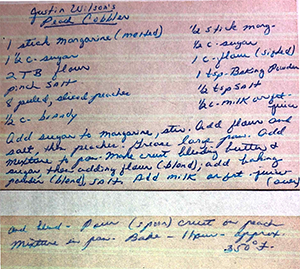 Justin Wilson's
Peach Cobbler
1 stick margarine (melted) ½ stick marg.
½ c. sugar ½ c. sugar
2 TB flour 1 c. flour (sifted)
pinch salt 1 tsp. Baking Powder
8 peeled, sliced peaches ½ tsp salt
½ c. brandy ½ c. milk or pet. juice
Add sugar to margarine, stir. Add flour and
salt, then peaches. Grease large pan. Add
mixture to pan. Make crust blending butter &
sugar then adding flour (blend), add baking
powder (blend), salt. Add milk or pet. juice
(over)
and blend. Pour (spoon) crust on peach
mixture in pan. Bake - 1 hour - approx.
350° F.